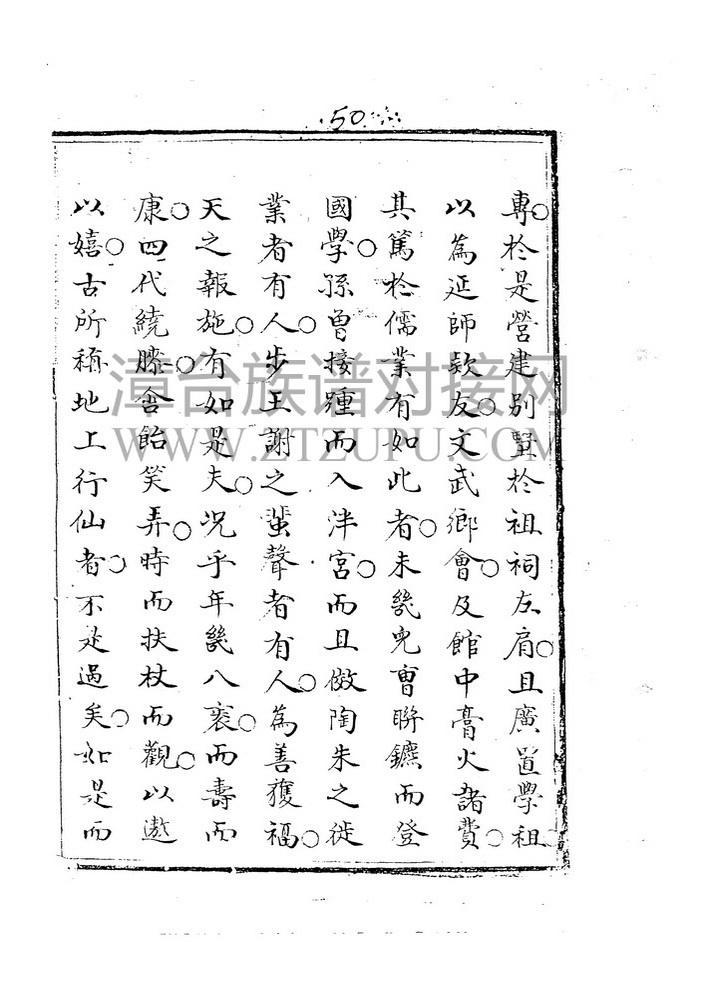 50
專○於是營建別墅於祖祠左肩○且廣置學租
以為延師款友○文武鄉會○及館中膏火諸費○
其篤於儒業有如此者○未幾兒曹聯鑣而登
國學○孫曾接踵而入泮宮○而且倣陶朱之徙
業者有人○步王謝之蜚聲者有人○為善獲福○
天之報施○有如是夫○況乎年幾八袠○而壽而
康○四代繞膝○含飴笑弄○時而扶杖而觀○以遨
以嬉○古所稱地上行仙者○不是過矣○如是而
漳台族谱对接网
WWW.ZTZUPU.COM